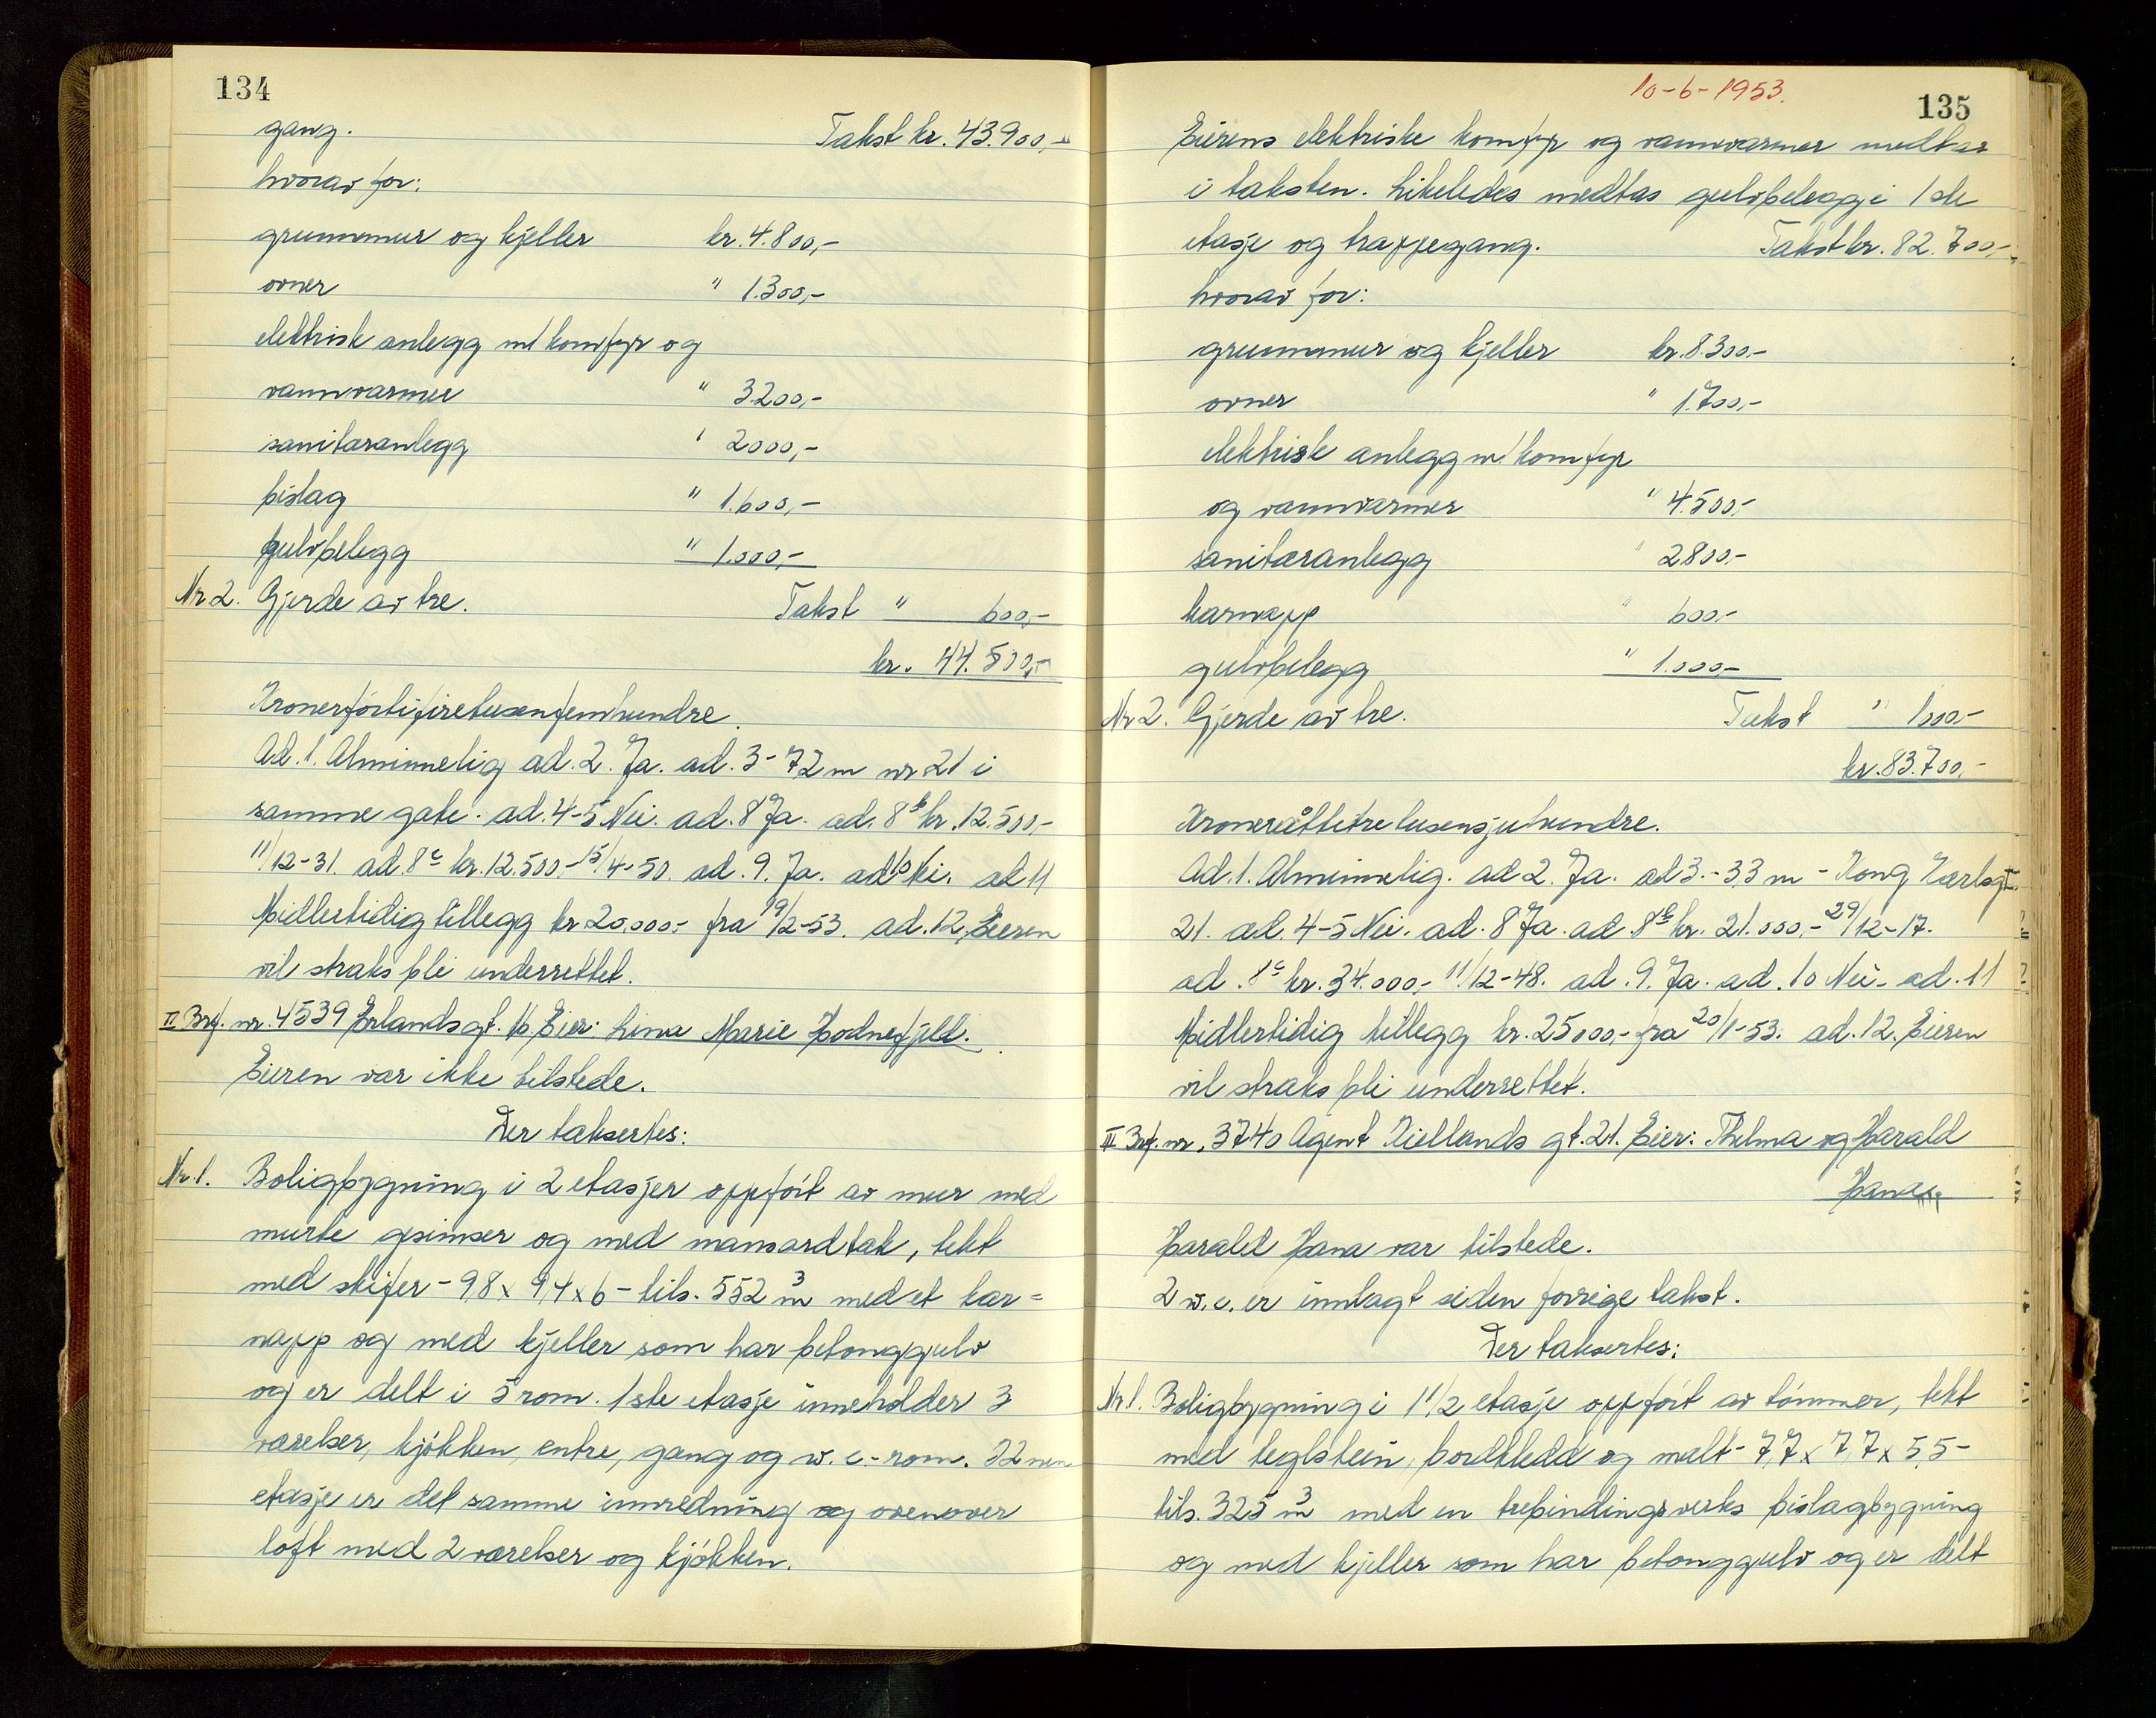 134
gang. Takst kr. 43.900,-
hvorav for:
grunnmur og kjeller kr. 4.800,-
ovner " 1.300,-
elektrisk anlegg m/komfyr og
vannvarmer " 3.200,-
sanitæranlegg " 2000,-
bislag " 1.600,-
gulvbelegg " 1.000,-
Nr 2. Gjerde av tre. Takst " 600,-
kr. 44.500,-
Kronerförtifiretusenfemhundre.
Ad. 1. Alminnelig ad. 2. Ja. ad. 3 - 72 m nr 21 i
samme gate. ad. 4-5 Nei. ad. 8 Ja. ad. 8b kr. 12.500,-
11/12-31. ad. 8c kr. 12.500,- 15/4-50. ad. 9. Ja. ad 10 Nei. ad 11
Midlertidig tillegg kr 20.000,- fra 19/2-53. ad. 12. Eieren
vil straks bli underrettet.
II Brf. nr. 4539 Erlandsgt. 16. Eier: Lina Marie Hodnefjeld.
Eieren var ikke tilstede.
Der taksertes:
Nr. 1. Boligbygning i 2 etasjer oppfört av mur med
murte gesimser og med mansardtak, tekt
med skifer - 9,8 x 9,4 x 6 - tils. 552 m3 med et kar=
napp og med kjeller som har betonggulv
og er delt i 5 rom. 1ste etasje inneholder 3
værelser, kjökken, entre, gang og w.c.-rom. I 2nen
etasje er det samme innredning og ovenover
loft med 2 værelser og kjökken.
10-6-1953.
135
Eierens elektriske komfyr og vannvarmer medtas
i taksten. Likeledes medtas gulvbelegg i 1ste
etasje og trappegang. Takst kr. 82.700,-
hvorav for:
grunnmur og kjeller kr. 8.300,-
ovner " 1.700,-
elektrisk anlegg m/komfyr
og vannvarmer " 4.500,-
sanitæranlegg " 2800,-
karnapp " 600,-
gulvbelegg " 1.000,-
Nr 2. Gjerde av tre. Takst " 1000,-
kr. 83.700,-
Kroneråttitretusensjuhundre.
Ad. 1. Alminnelig. ad 2. Ja. ad 3. - 33 m - Kong Karlsgt.
21. ad. 4-5 Nei. ad. 8 Ja. ad. 8b kr. 21.000,- 29/12-17.
ad. 8c kr. 34.000,- 11/12-48. ad. 9. Ja. ad. 10 Nei. ad. 11
Midlertidig tillegg kr. 25000,- fra 20/1-53. ad. 12. Eieren
vil straks bli underrettet.
III Brf. nr. 3740 Agent Kiellands gt. 21. Eier: Thelma og Harald
Hana.
Harald Hana var tilstede.
2 w.c. er innlagt siden forrige takst.
Der taksertes:
Nr 1. Boligbygning i 1 1/2 etasje oppfört av tömmer, tekt
med teglstein, bordkledd og malt - 7,7 x 7,7 x 5,5 -
tils. 325 m3 med en trebindingsverks bislagbygning
og med kjeller som har betonggulv og er delt